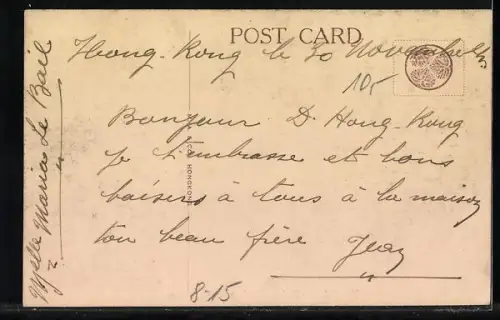 POST CARD
Hong-Kong le 30 Novembre
10,-
Bonjour D. Hong-Kong
je t'embrasse et bons
baisers à tous à la maison
ton beau frère Jean
8-15
Melle Maria Le Bail
HONGKONG